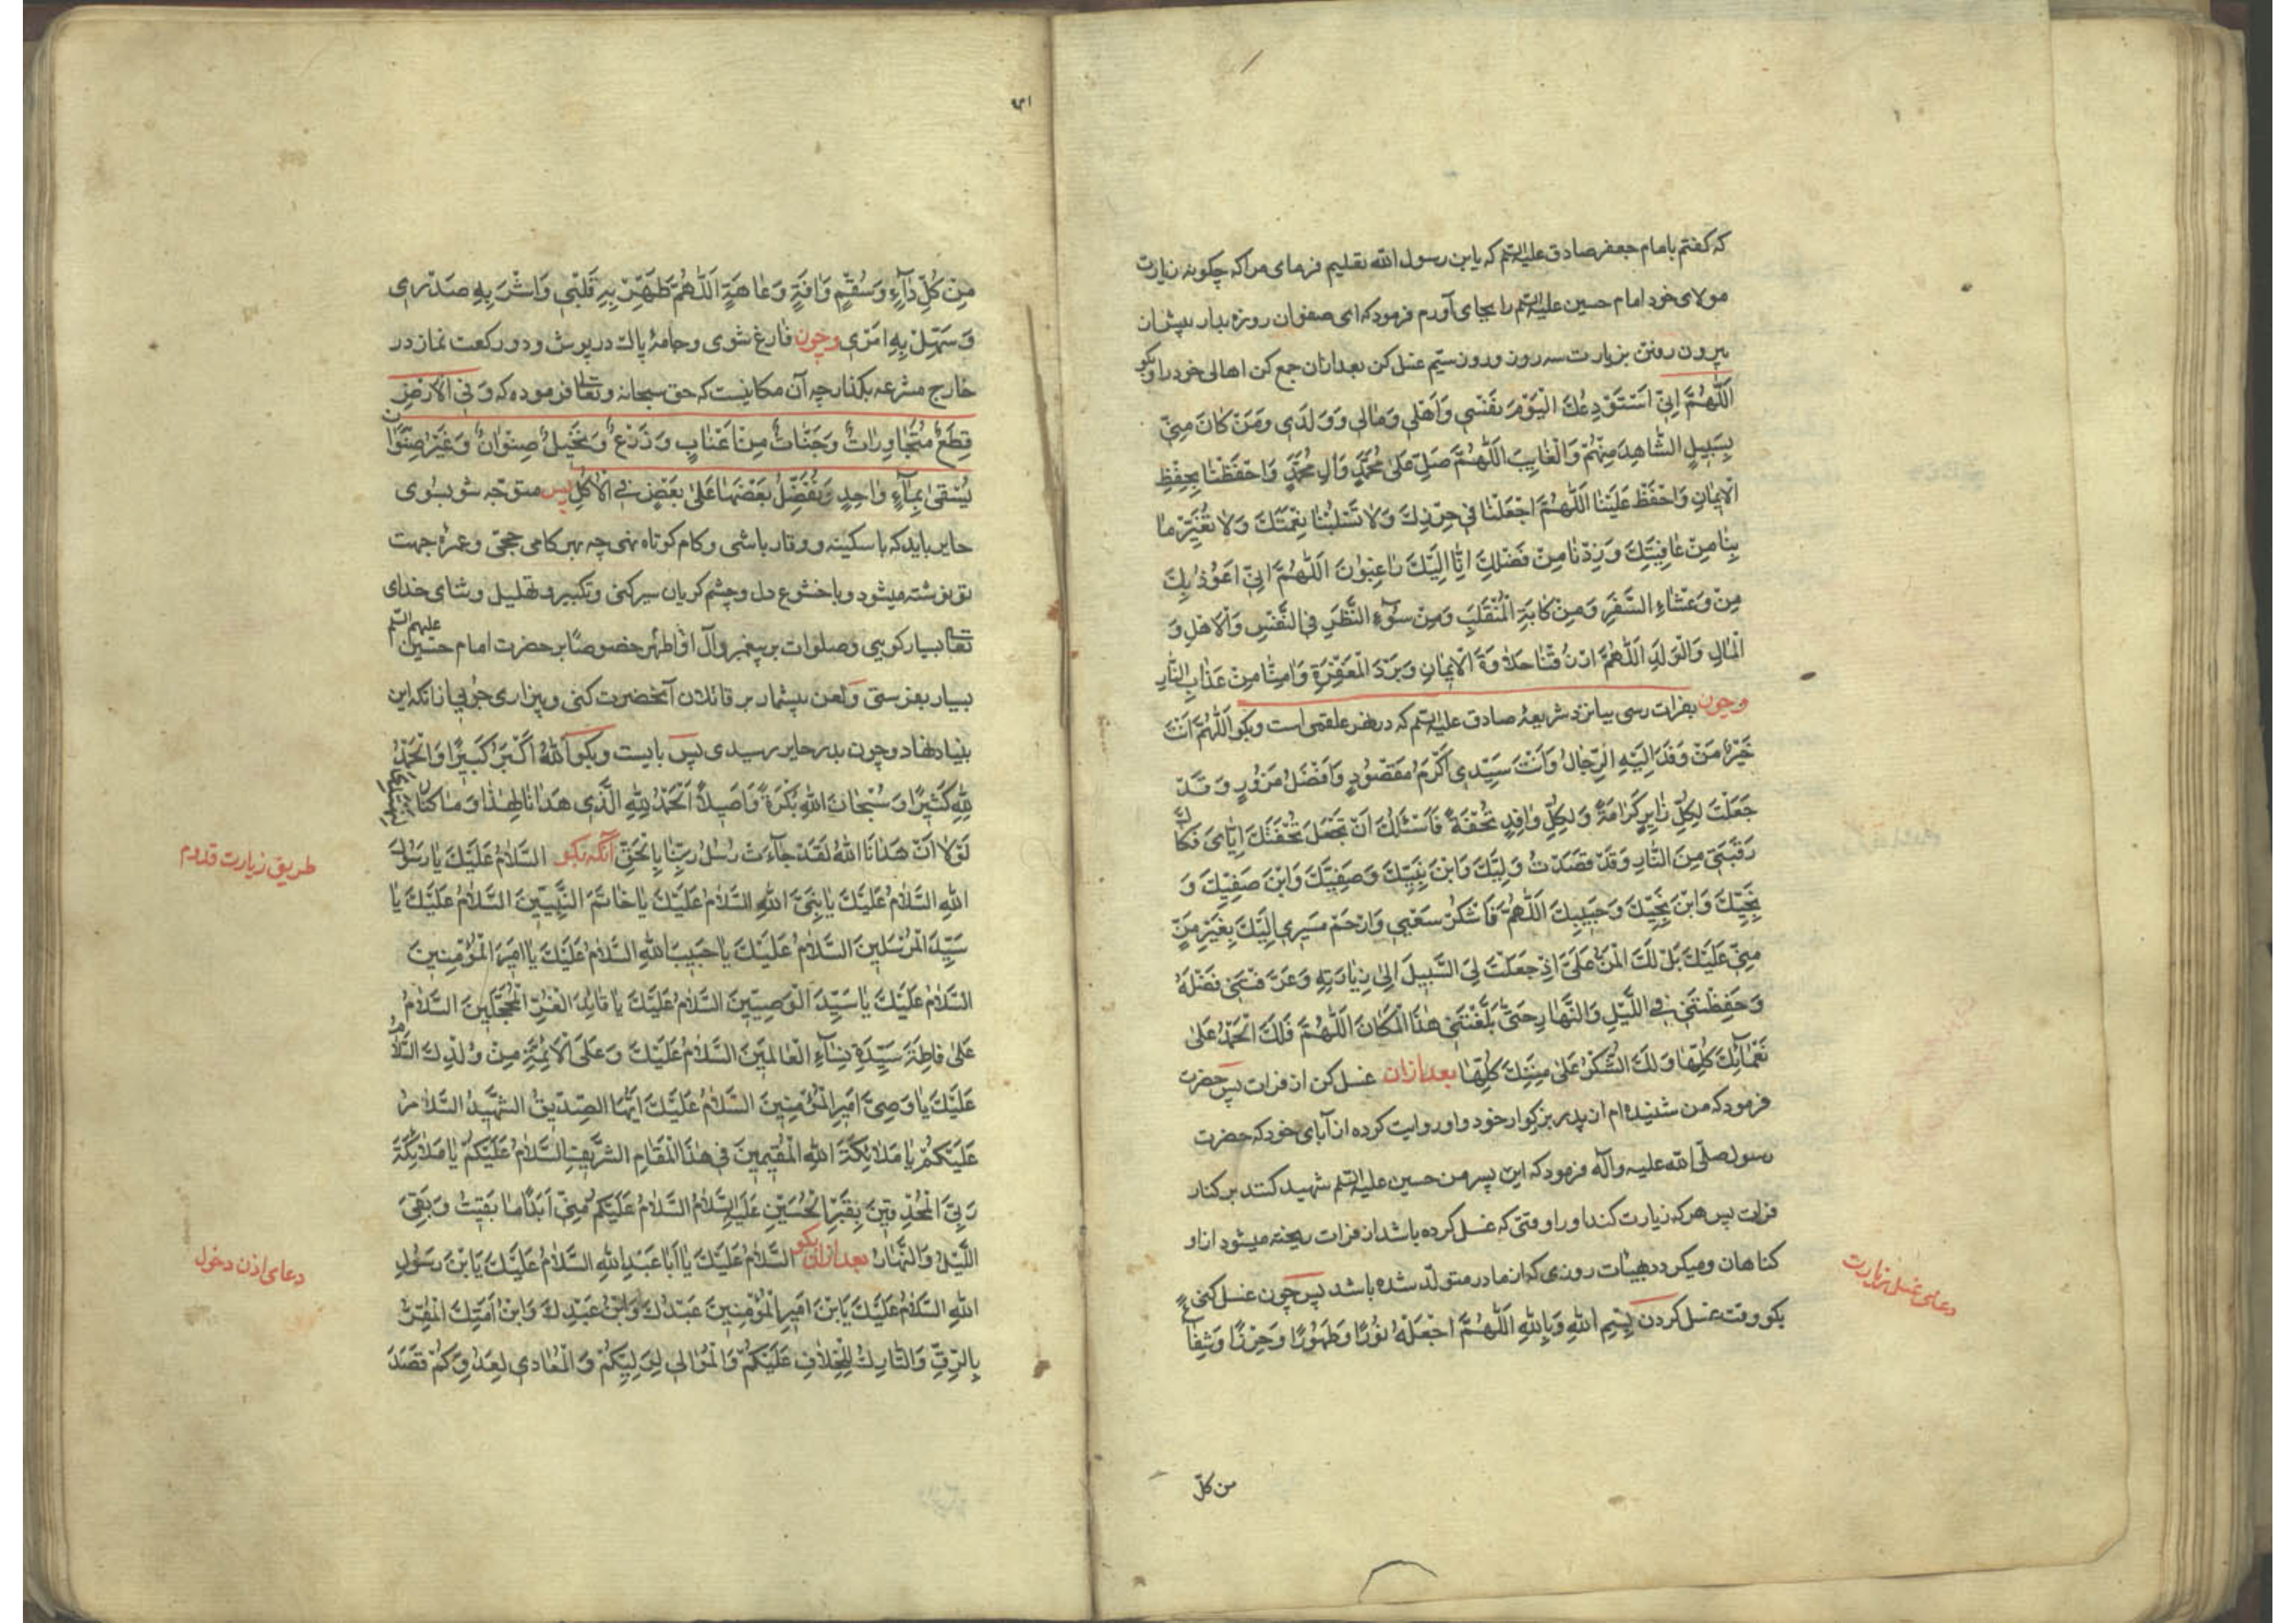 که کفتم بامام جعفر صادق علیه السلم که یابن رسول الله تعلیم فرمای مرا که چکونه زیارت
مولای خود امام حسین علیه السلم را بجای آورم فرمود که ای صفوان روزه بدار پیش از
بیرون رفتن بزیارت سه روز و روز سیم غسل کن بعد ازان جمع کن اهالی خود را و بکو
اَللّهُمَّ اِنّی اَسْتَوْدِعُكَ الْیَوْمَ نَفْسی وَاَهْلی وَمالی وَوَلَدی وَمَنْ کانَ مِنّی
بِسَبیلٍ الشّاهِدَ مِنْهُمْ وَالْغایِبَ اَللّهُمَّ صَلِّ عَلی مُحَمَّدٍ وَالِ مُحَمَّدٍ وَاحْفَظْنا بِحِفْظِ
الْایمانِ وَاحْفَظْ عَلَیْنا اَللّهُمَّ اجْعَلْنا فی حِرْزِكَ وَلا تَسْلُبْنا نِعْمَتَكَ وَلا تُغَیِّرْ ما
بِنا مِنْ عافِیَتِكَ وَزِدْنا مِنْ فَضْلِكَ اِنّا اِلَیْكَ راغِبُونَ اَللّهُمَّ اِنّی اَعُوْذُ بِكَ
مِنْ وَعْثاءِ السَّفَرِ وَمِنْ کابَةِ الْمُنْقَلَبِ وَمِنْ سُوْءِ النَّظَرِ فِی النَّفْسِ وَالْاَهْلِ وَ
الْمالِ وَالْوَلَدِ اَللّهُمَّ ارْزُقْنا حَلاوَةَ الْایمانِ وَبَرْدَ الْمَغْفِرَةِ وَامِنّا مِنْ عَذابِ النّارِ
وچون بفرات رسی بیا نزد شریعهٔ صادق علیه السلم که در نهر علقمی است وبکو اَللّهُمَّ اَنْتَ
خَیْرُ مَنْ وَفَدَ اِلَیْهِ الرِّجالُ وَاَنْتَ سَیِّدی اَکْرَمُ مَقْصُودٍ وَاَفْضَلُ مَزُورٍ وَقَدْ
جَعَلْتَ لِکُلِّ زایِرٍ کَرامَةً وَلِکُلِّ وافِدٍ تُحْفَةً فَاَسْئَلُكَ اَنْ تَجْعَلَ تُحْفَتَكَ اِیّایَ فَکاكَ
رَقَبَتی مِنَ النّارِ وَقَدْ قَصَدْتُ وَلِیَّكَ وَابْنَ نَبِیِّكَ وَصَفِیَّكَ وَابْنَ صَفِیِّكَ وَ
نَجِیَّكَ وَابْنَ نَجِیِّكَ وَحَبیبِكَ اَللّهُمَّ فَاشْکُرْ سَعْیی وَارْحَمْ مَسیری اِلَیْكَ بِغَیْرِ مَنٍّ
مِنّی عَلَیْكَ بَلْ لَكَ الْمَنُّ عَلَیَّ اِذْ جَعَلْتَ لِیَ السَّبیلَ اِلی زِیارَتِهِ وَعَرَّفْتَنی فَضْلَهُ
وَحَفِظْتَنی فِی اللَّیْلِ وَالنَّهارِ حَتّی بَلَّغْتَنی هذَا الْمَکانَ اَللّهُمَّ فَلَكَ الْحَمْدُ عَلی
نَعْمائِكَ کُلِّها وَلَكَ الشُّکْرُ عَلی مِنَنِكَ کُلِّها بعد ازان غسل کن از فرات پس حضرت
فرمود که من شنیده ام از پدر بزرکوار خود و او روایت کرده از آبای خود که حضرت
رسول صلی الله علیه وآله فرمود که این پسر من حسین علیه السلم شهید کنند بر کنار
فرات پس هرکه زیارت کند او را وقتی که غسل کرده باشد از فرات ریخته میشود از او
کناهان ومیکردد بهیئات روزی که از مادر متولد شده باشد پس چون غسل کنی
بکو وقت غسل کردن بِسْمِ اللهِ وَبِاللهِ اَللّهُمَّ اجْعَلْهُ نُوْرًا وَطَهُوْرًا وَحِرْزًا وَشِفاءً
دعای غسل زیارت
من کلّ
مِنْ کُلِّ داءٍ وَسُقْمٍ وَافَةٍ وَعاهَةٍ اَللّهُمَّ طَهِّرْ بِهِ قَلْبی وَاشْرَحْ بِهِ صَدْری
وَسَهِّلْ بِهِ اَمْری وچون فارغ شوی وجامهٔ پاك درپوش ودو رکعت نماز در
خارج مشرعه بکذار چه آن مکانیست که حق سبحانه وتعالی فرموده که وَفِی الْاَرْضِ
قِطَعٌ مُتَجاوِراتٌ وَجَنّاتٌ مِنْ اَعْنابٍ وَزَرْعٌ وَنَخیلٌ صِنْوانٌ وَغَیْرُ صِنْوانٍ
یُسْقی بِماءٍ واحِدٍ وَنُفَضِّلُ بَعْضَها عَلی بَعْضٍ فِی الْاُکُلِ پس متوجه شو بسوی
حایر باید که با سکینه و وقار باشی وکام کوتاه نهی چه بهر کامی حجی وعمرهٔ جهت
تو نوشته میشود وبا خشوع دل وچشم کریان سیر کنی وتکبیر وتهلیل وثنای خدای
تعالی بسیار کویی وصلوات بر پیغمبر وآل اطهر خصوصًا بر حضرت امام حسین علیهم السلم
بسیار بفرستی ولعن بیشمار بر قاتلان آنحضرت کنی وبیزاری جویی از آنکه این
بنیاد نهاد وچون بدر حایر رسیدی پس بایست وبکو اَللهُ اَکْبَرُ کَبیرًا وَالْحَمْدُ
لِلّهِ کَثیرًا وَسُبْحانَ اللهِ بُکْرَةً وَاَصیلاً اَلْحَمْدُ لِلّهِ الَّذی هَدانا لِهذا وَما کُنّا لِنَهْتَدِیَ
لَوْلا اَنْ هَدانَا اللهُ لَقَدْ جاءَتْ رُسُلُ رَبِّنا بِالْحَقِّ آنکه بکو اَلسَّلامُ عَلَیْكَ یا رَسُولَ
اللهِ السَّلامُ عَلَیْكَ یا نَبِیَّ اللهِ السَّلامُ عَلَیْكَ یا خاتَمَ النَّبِیّینَ السَّلامُ عَلَیْكَ یا
سَیِّدَ الْمُرْسَلینَ السَّلامُ عَلَیْكَ یا حَبیبَ اللهِ السَّلامُ عَلَیْكَ یا اَمیرَ الْمُؤْمِنینَ
السَّلامُ عَلَیْكَ یا سَیِّدَ الْوَصِیّینَ السَّلامُ عَلَیْكَ یا قائِدَ الْغُرِّ الْمُحَجَّلینَ السَّلامُ
عَلی فاطِمَةَ سَیِّدَةِ نِساءِ الْعالَمینَ السَّلامُ عَلَیْكَ وَعَلَی الْاَئِمَّةِ مِنْ وُلْدِكَ السَّلامُ
عَلَیْكَ یا وَصِیَّ اَمیرِ الْمُؤْمِنینَ السَّلامُ عَلَیْكَ اَیُّهَا الصِّدّیقُ الشَّهیدُ السَّلامُ
عَلَیْکُمْ یا مَلائِکَةَ اللهِ الْمُقیمینَ فی هذَا الْمَقامِ الشَّریفِ السَّلامُ عَلَیْکُمْ یا مَلائِکَةَ
رَبِّیَ الْمُحْدِقینَ بِقَبْرِ الْحُسَیْنِ عَلَیْهِ السَّلامُ السَّلامُ عَلَیْکُمْ مِنّی اَبَدًا ما بَقیتُ وَبَقِیَ
اللَّیْلُ وَالنَّهارُ بعد ازان بکو اَلسَّلامُ عَلَیْكَ یا اَبا عَبْدِ اللهِ السَّلامُ عَلَیْكَ یَا بْنَ رَسُولِ
اللهِ السَّلامُ عَلَیْكَ یَا بْنَ اَمیرِ الْمُؤْمِنینَ عَبْدُكَ وَابْنُ عَبْدِكَ وَابْنُ اَمَتِكَ الْمُقِرُّ
بِالرِّقِّ وَالتّارِكُ لِلْخِلافِ عَلَیْکُمْ وَالْمُوالی لِوَلِیِّکُمْ وَالْمُعادی لِعَدُوِّکُمْ قَصَدَ
طریق زیارت قدوم
دعای اذن دخول